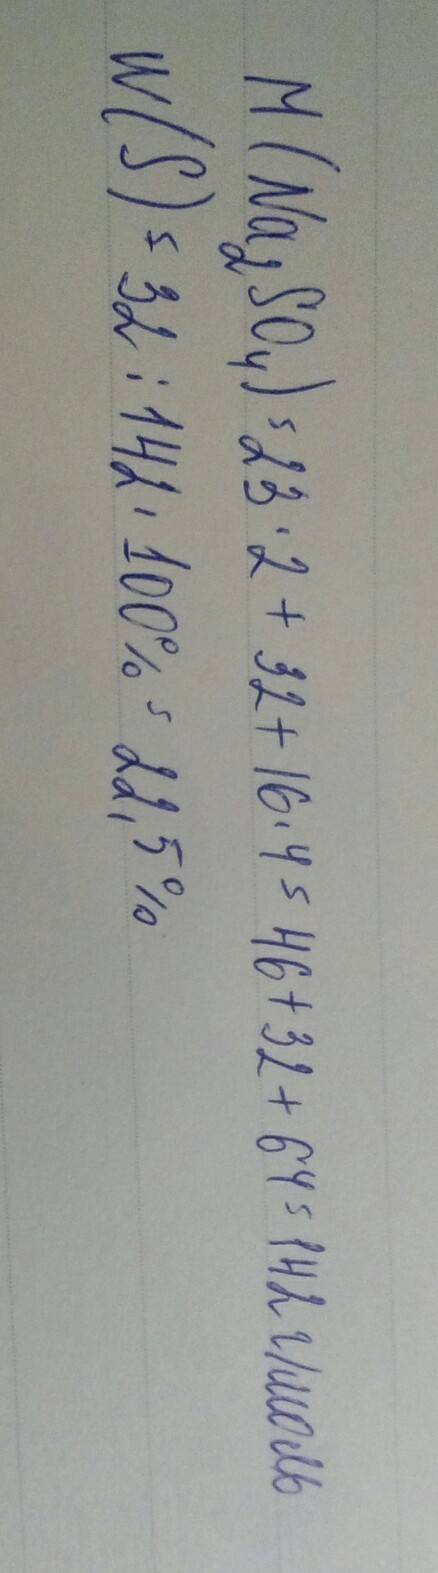 M(Na₂SO₄)=23·2+32+16·4=46+32+64=142 г/моль
W(S)=32:142·100%=22,5%